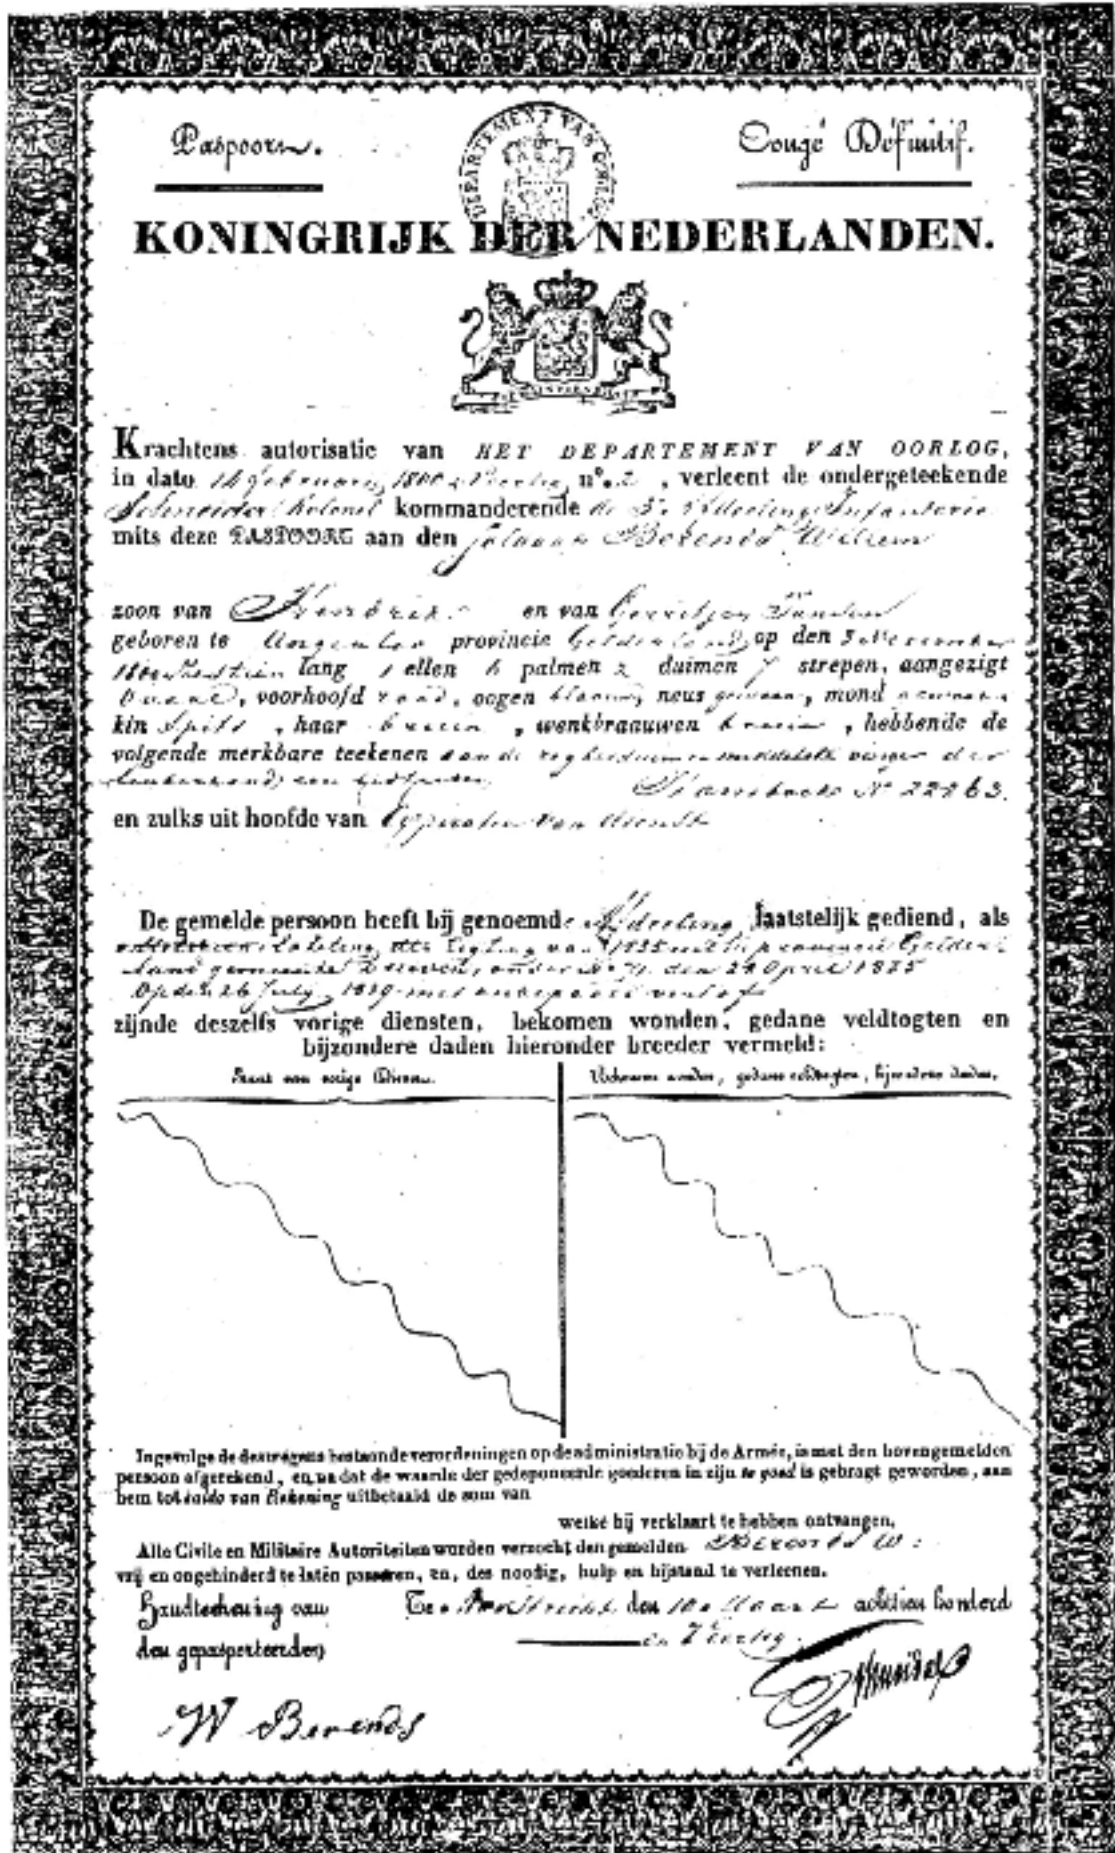 Paspoort.
Congé Définitif.
DEPARTEMENT VAN OORLOG
KONINGRIJK DER NEDERLANDEN.
Krachtens autorisatie van HET DEPARTEMENT VAN OORLOG,
in dato 14 februarij 1800 veertig nº. 2, verleent de ondergeteekende
Schneider Kolonel kommanderende de 3e Afdeeling Infanterie
mits deze PASPOORT aan den Berends Willem
zoon van Hendrik en van Gerritjen
geboren te Angerloo provincie Gelderland op den
1800 lang 1 ellen 6 palmen 2 duimen 7 strepen, aangezigt
ovaal, voorhoofd rond, oogen blaauw, neus gewoon, mond gewoon
kin spits, haar bruin, wenkbraauwen bruin, hebbende de
volgende merkbare teekenen aan de middelste vinger der
linkerhand een
Stamboek Nº 22863.
en zulks uit hoofde van Expiratie van dienst
De gemelde persoon heeft bij genoemde Afdeeling laatstelijk gediend, als
Loteling der Ligting van 1835 uit de provincie Gelder
land gemeente onder Nº 71. den 29 April 1835
Op den 26 Julij 1839 met verlof
zijnde deszelfs vorige diensten, bekomen wonden, gedane veldtogten en
bijzondere daden hieronder breeder vermeld:
Staat van vorige Diensten.
Bekomen wonden, gedane veldtogten, bijzondere daden.
Ingevolge de deswegens bestaande verordeningen op de administratie bij de Armée, is met den bovengemelden
persoon afgerekend, en, na dat de waarde der gedeponeerde goederen in zijn te goed is gebragt geworden, aan
hem tot saldo van Rekening uitbetaald de som van
welke hij verklaart te hebben ontvangen.
Alle Civile en Militaire Autoriteiten worden verzocht den gemelden Berends W:
vrij en ongehinderd te laten passeren, en, des noodig, hulp en bijstand te verleenen.
Handteekening van
den gepasporteerden
Te Maastricht den 10e Maart achttien honderd
en Veertig.
Schneider
W Berends